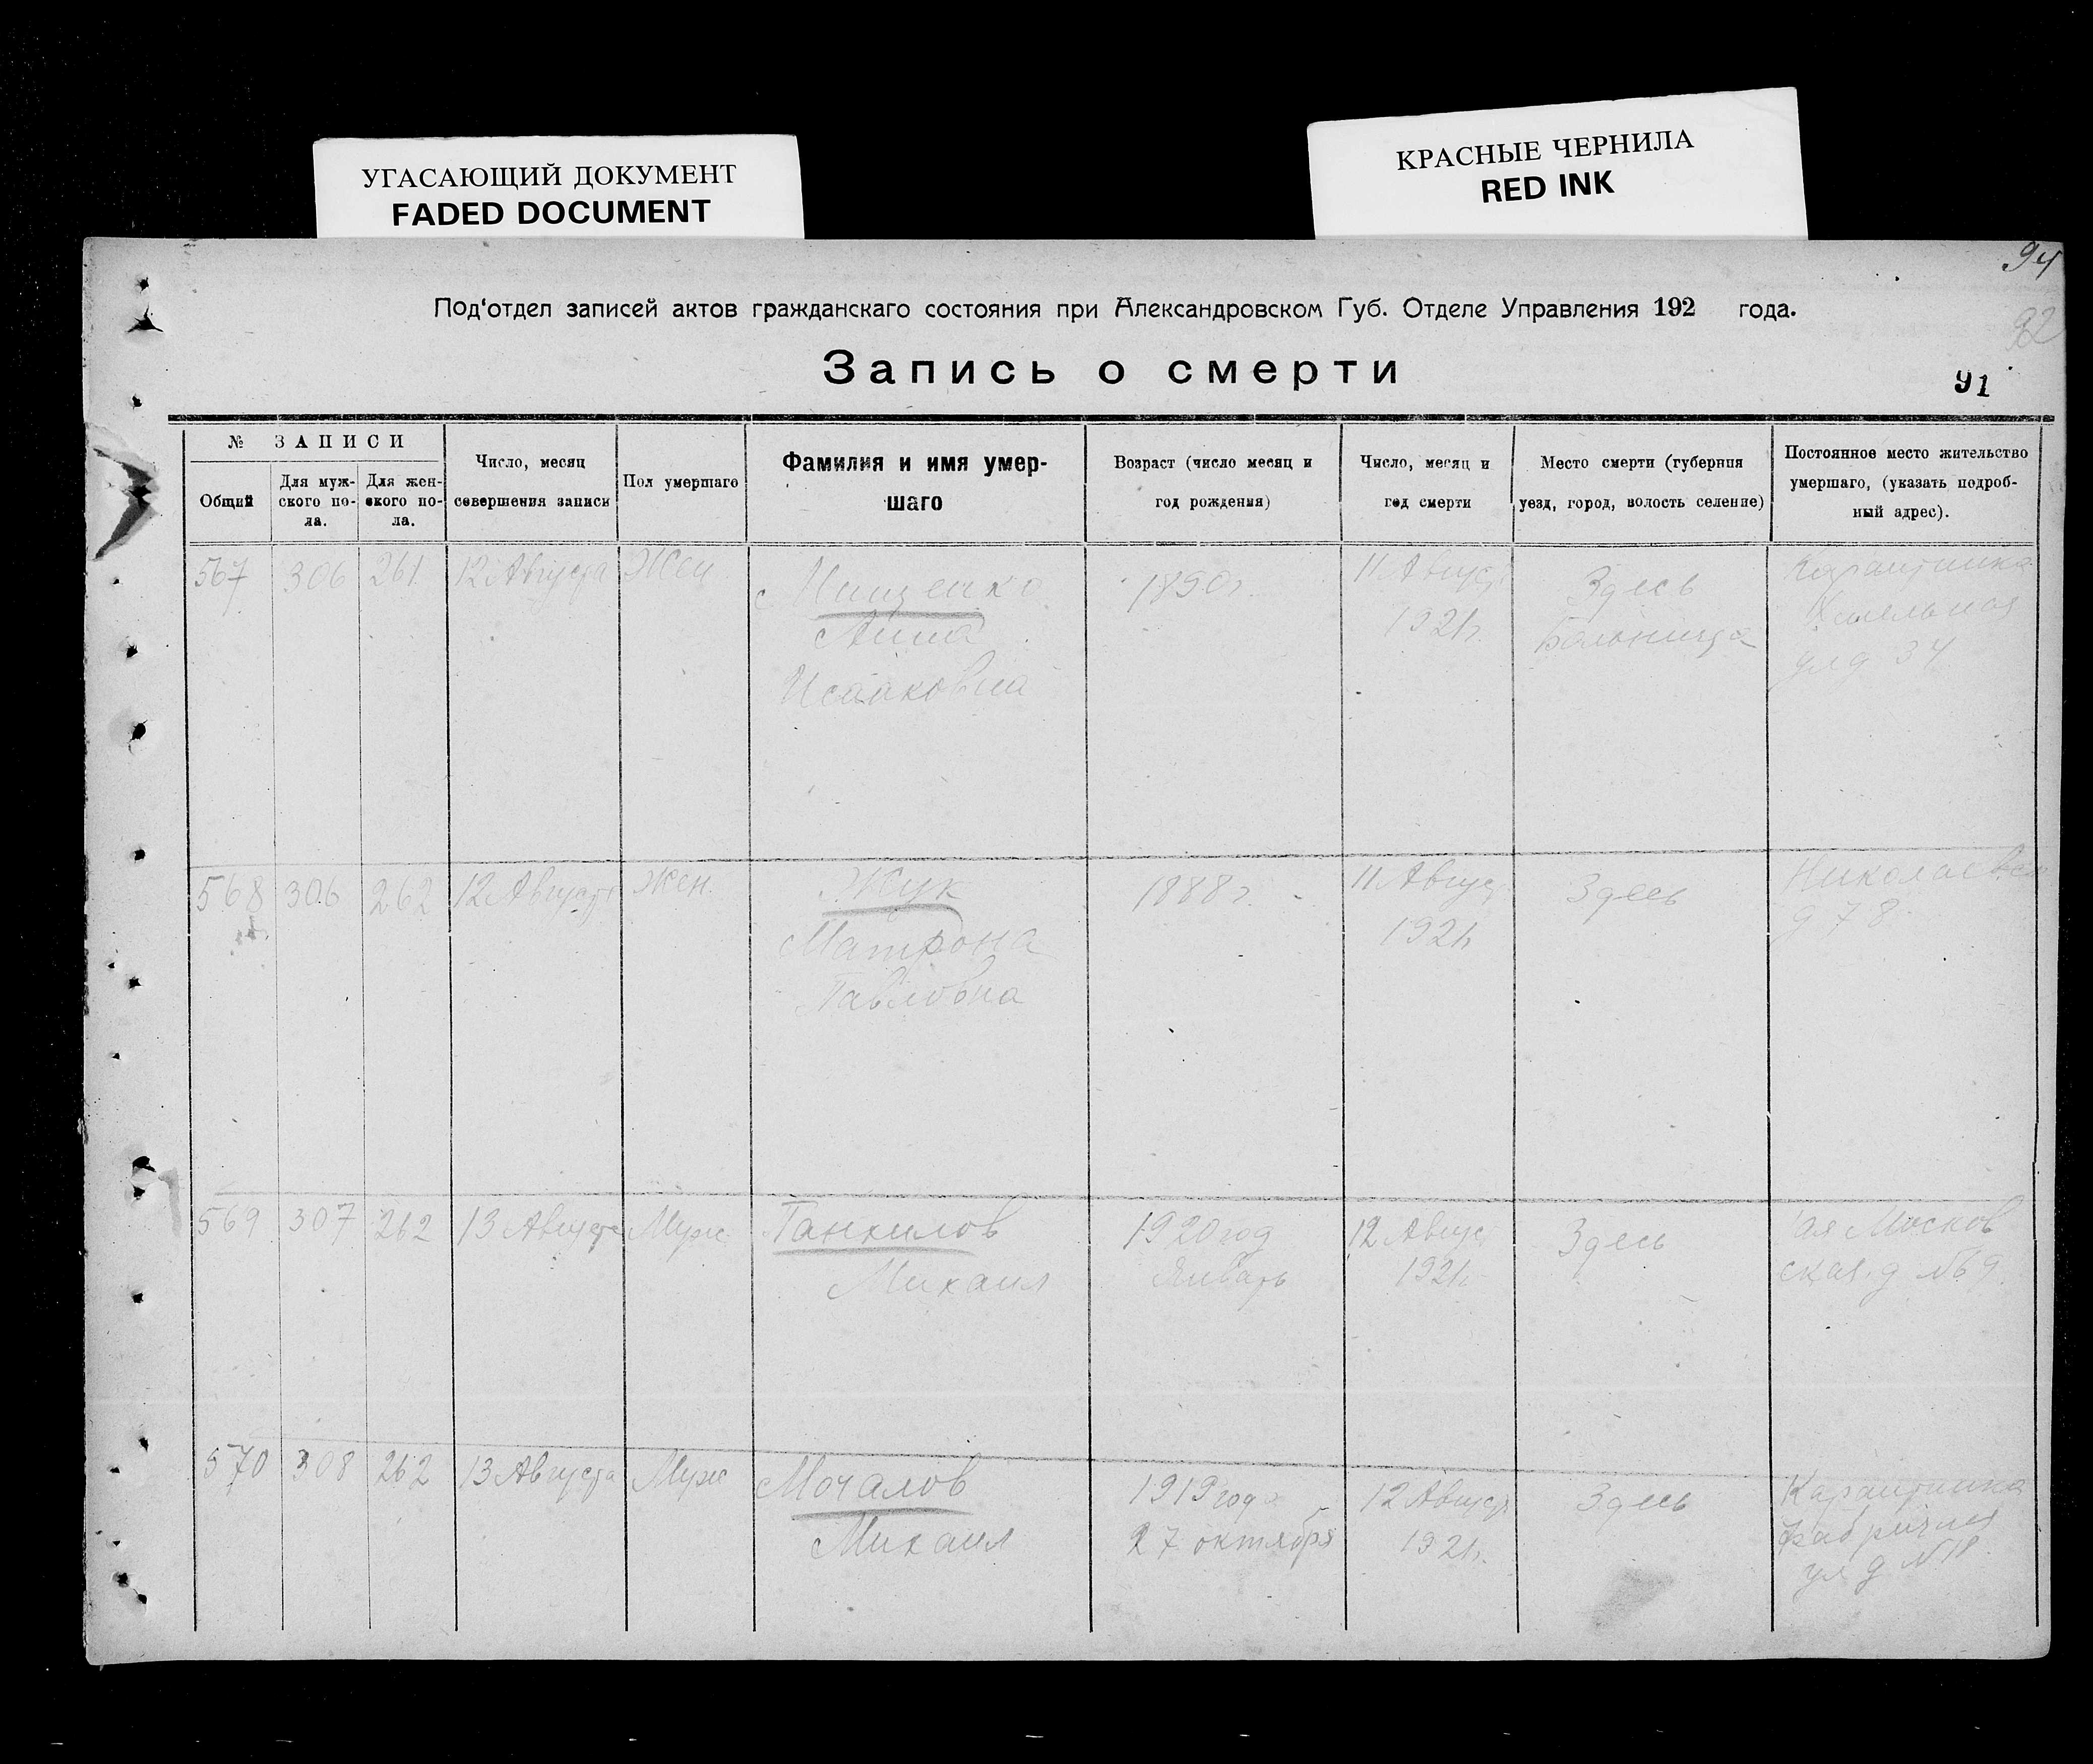 УГАСАЮЩИЙ ДОКУМЕНТ
FADED DOCUMENT
КРАСНЫЕ ЧЕРНИЛА
RED INK
94
92
Под‘отдел записей актов гражданскаго состояния при Александровском Губ. Отделе Управления 192 года.
Запись о смерти
91
№ ЗАПИСИ
Общий
Для муж-
ского по-
ла.
Для жен-
ского по-
ла.
Число, месяц
совершения записи
Пол умершаго
Фамилия и имя умер-
шаго
Возраст (число месяц и
год рождения)
Число, месяц и
год смерти
Место смерти (губерния
уезд, город, волость селение)
Постоянное место жительство
умершаго, (указать подроб-
ный адрес).
567
306
261
12 Августа
Жен
Анна
Исааковна
1890г.
11 Август
1921г.
Здесь
Больница
Карантинка
ул д 34
568
306
262
12 Августа
Жен.
Жук
Матрона
Павловна
1888г.
11 Август
1921г
Здесь
Николаевск
д 78
569
307
262
13 Августа
Муж
Михаил
1920 год
Январь
12 Август
1921г
Здесь
ая Москов
ская д №69
570
308
262
13 Августа
Муж
Мочалов
Михаил
1919 года
27 октября
12 Август
1921г.
Здесь
Карантинка
Фабричная
ул д №18